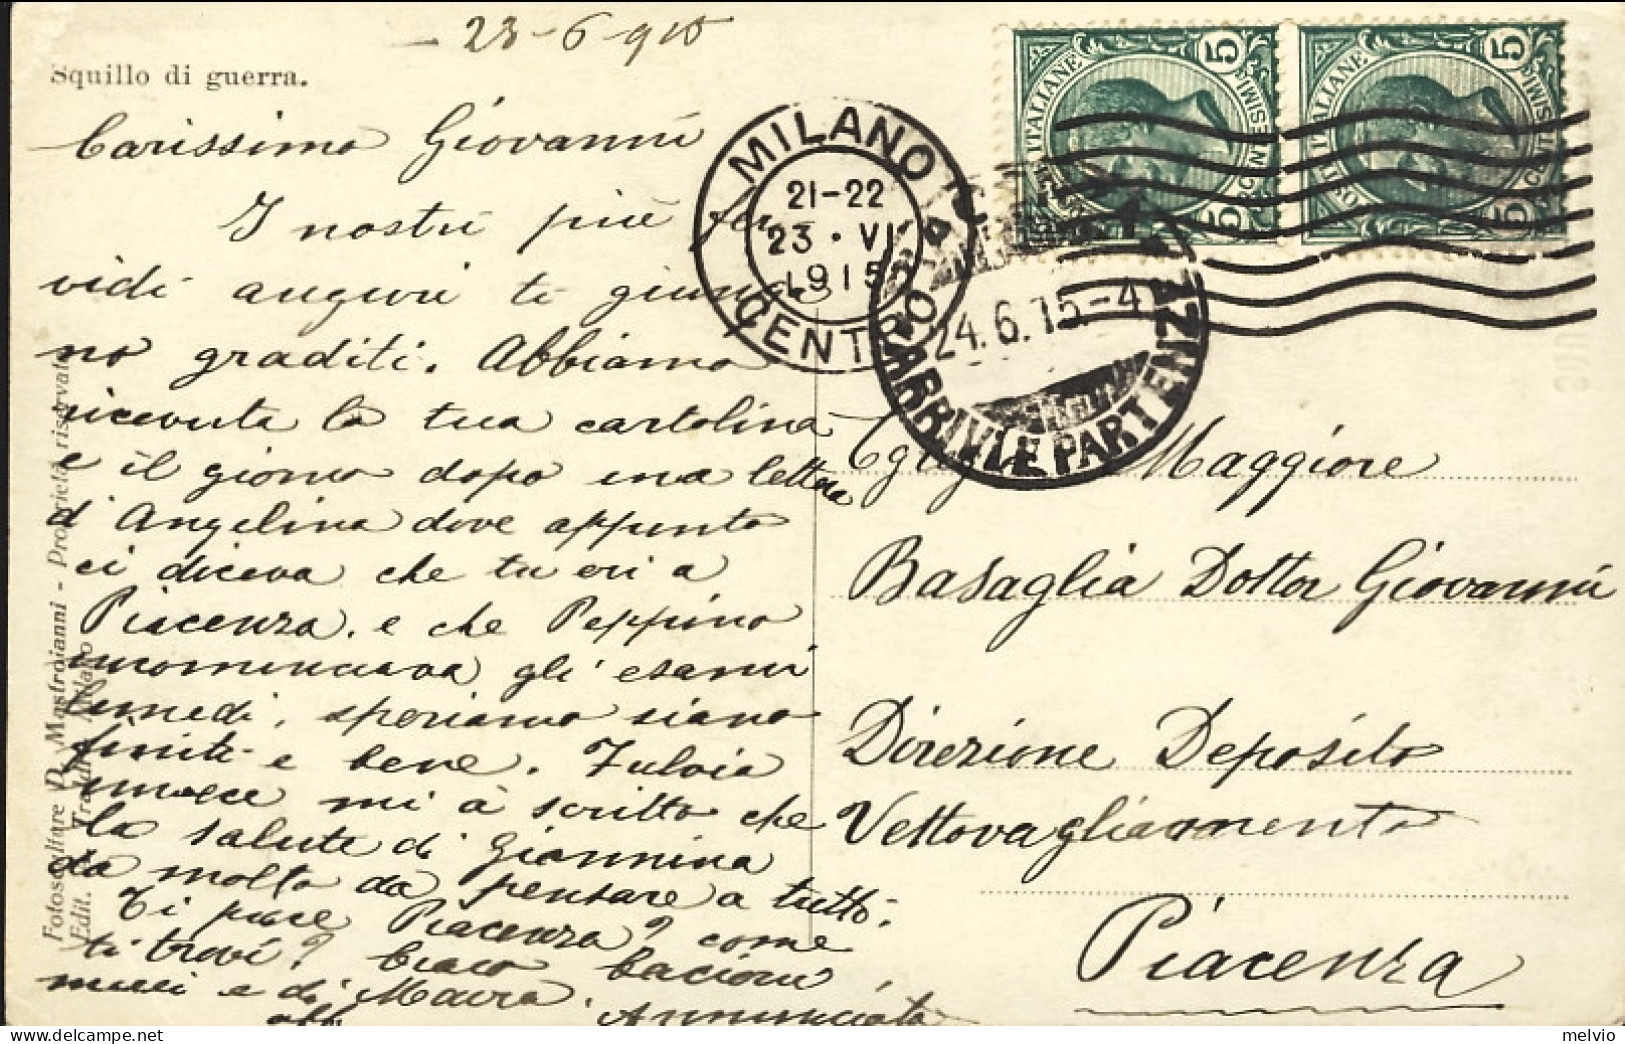 23-6-915
Squillo di guerra.
Carissimo Giovanni
I nostri più fer
vidi auguri ti giunga
no graditi. Abbiamo
ricevuto la tua cartolina
e il giorno dopo una lettera
d'Angelina dove appunto
ci diceva che tu eri a
Piacenza. e che Peppino
incominciava gli esami
lunedì, speriamo siano
finiti e bene. Fulvia
invece mi à scritto che
la salute di Giannina
da molto da pensare a tutti.
Ti piace Piacenza? come
ti trovi? bacioni
miei e di Maura.
aff Annunciata
Fotoscultore D. Mastroianni - Proprietà riservata
Edit. Milano
MILANO
21-22
23 · VI
1915
CENTRO
24.6.15-4
ARRIVI E PARTENZE
ITALIANE
5
CENTESIMI
5
ITALIANE
5
CENTESIMI
5
Maggiore
Basaglia Dottor Giovanni
Direzione Deposito
Vettovagliamento
Piacenza
delcampe.net
melvio